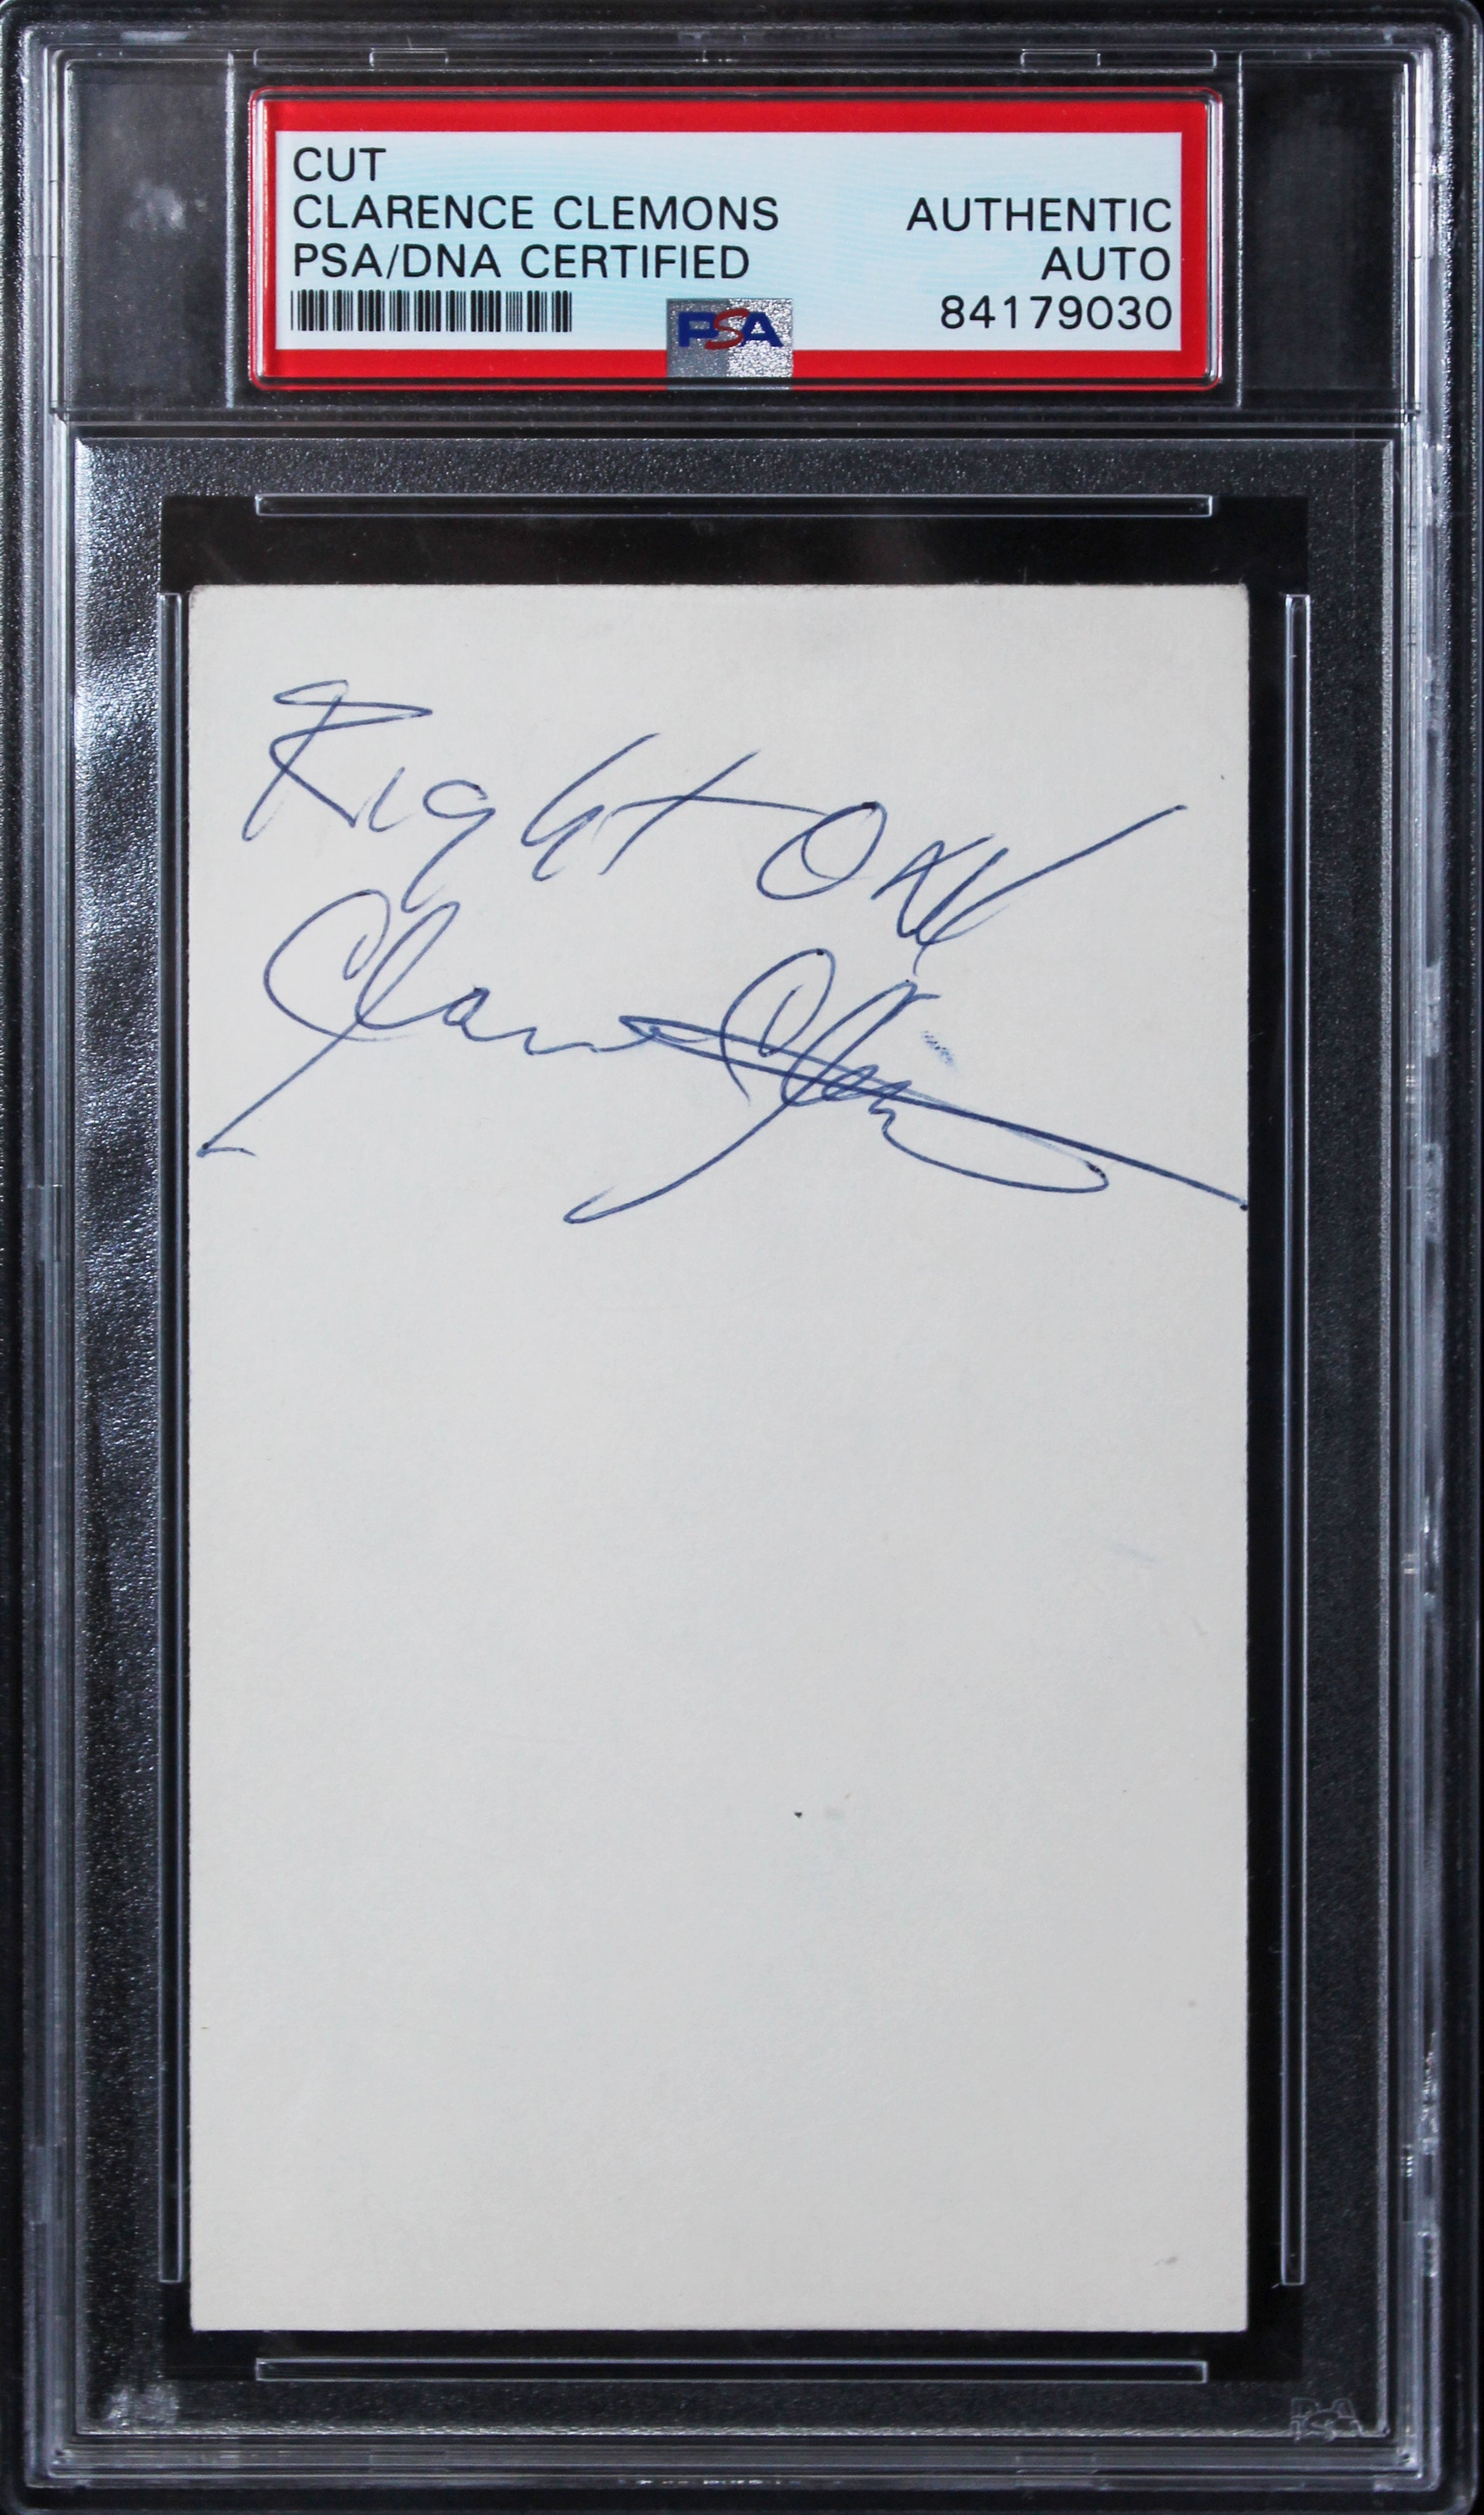 CUT
CLARENCE CLEMONS
PSA/DNA CERTIFIED
AUTHENTIC
AUTO
84179030
PSA
Right On
Clarence Clemons
PSA